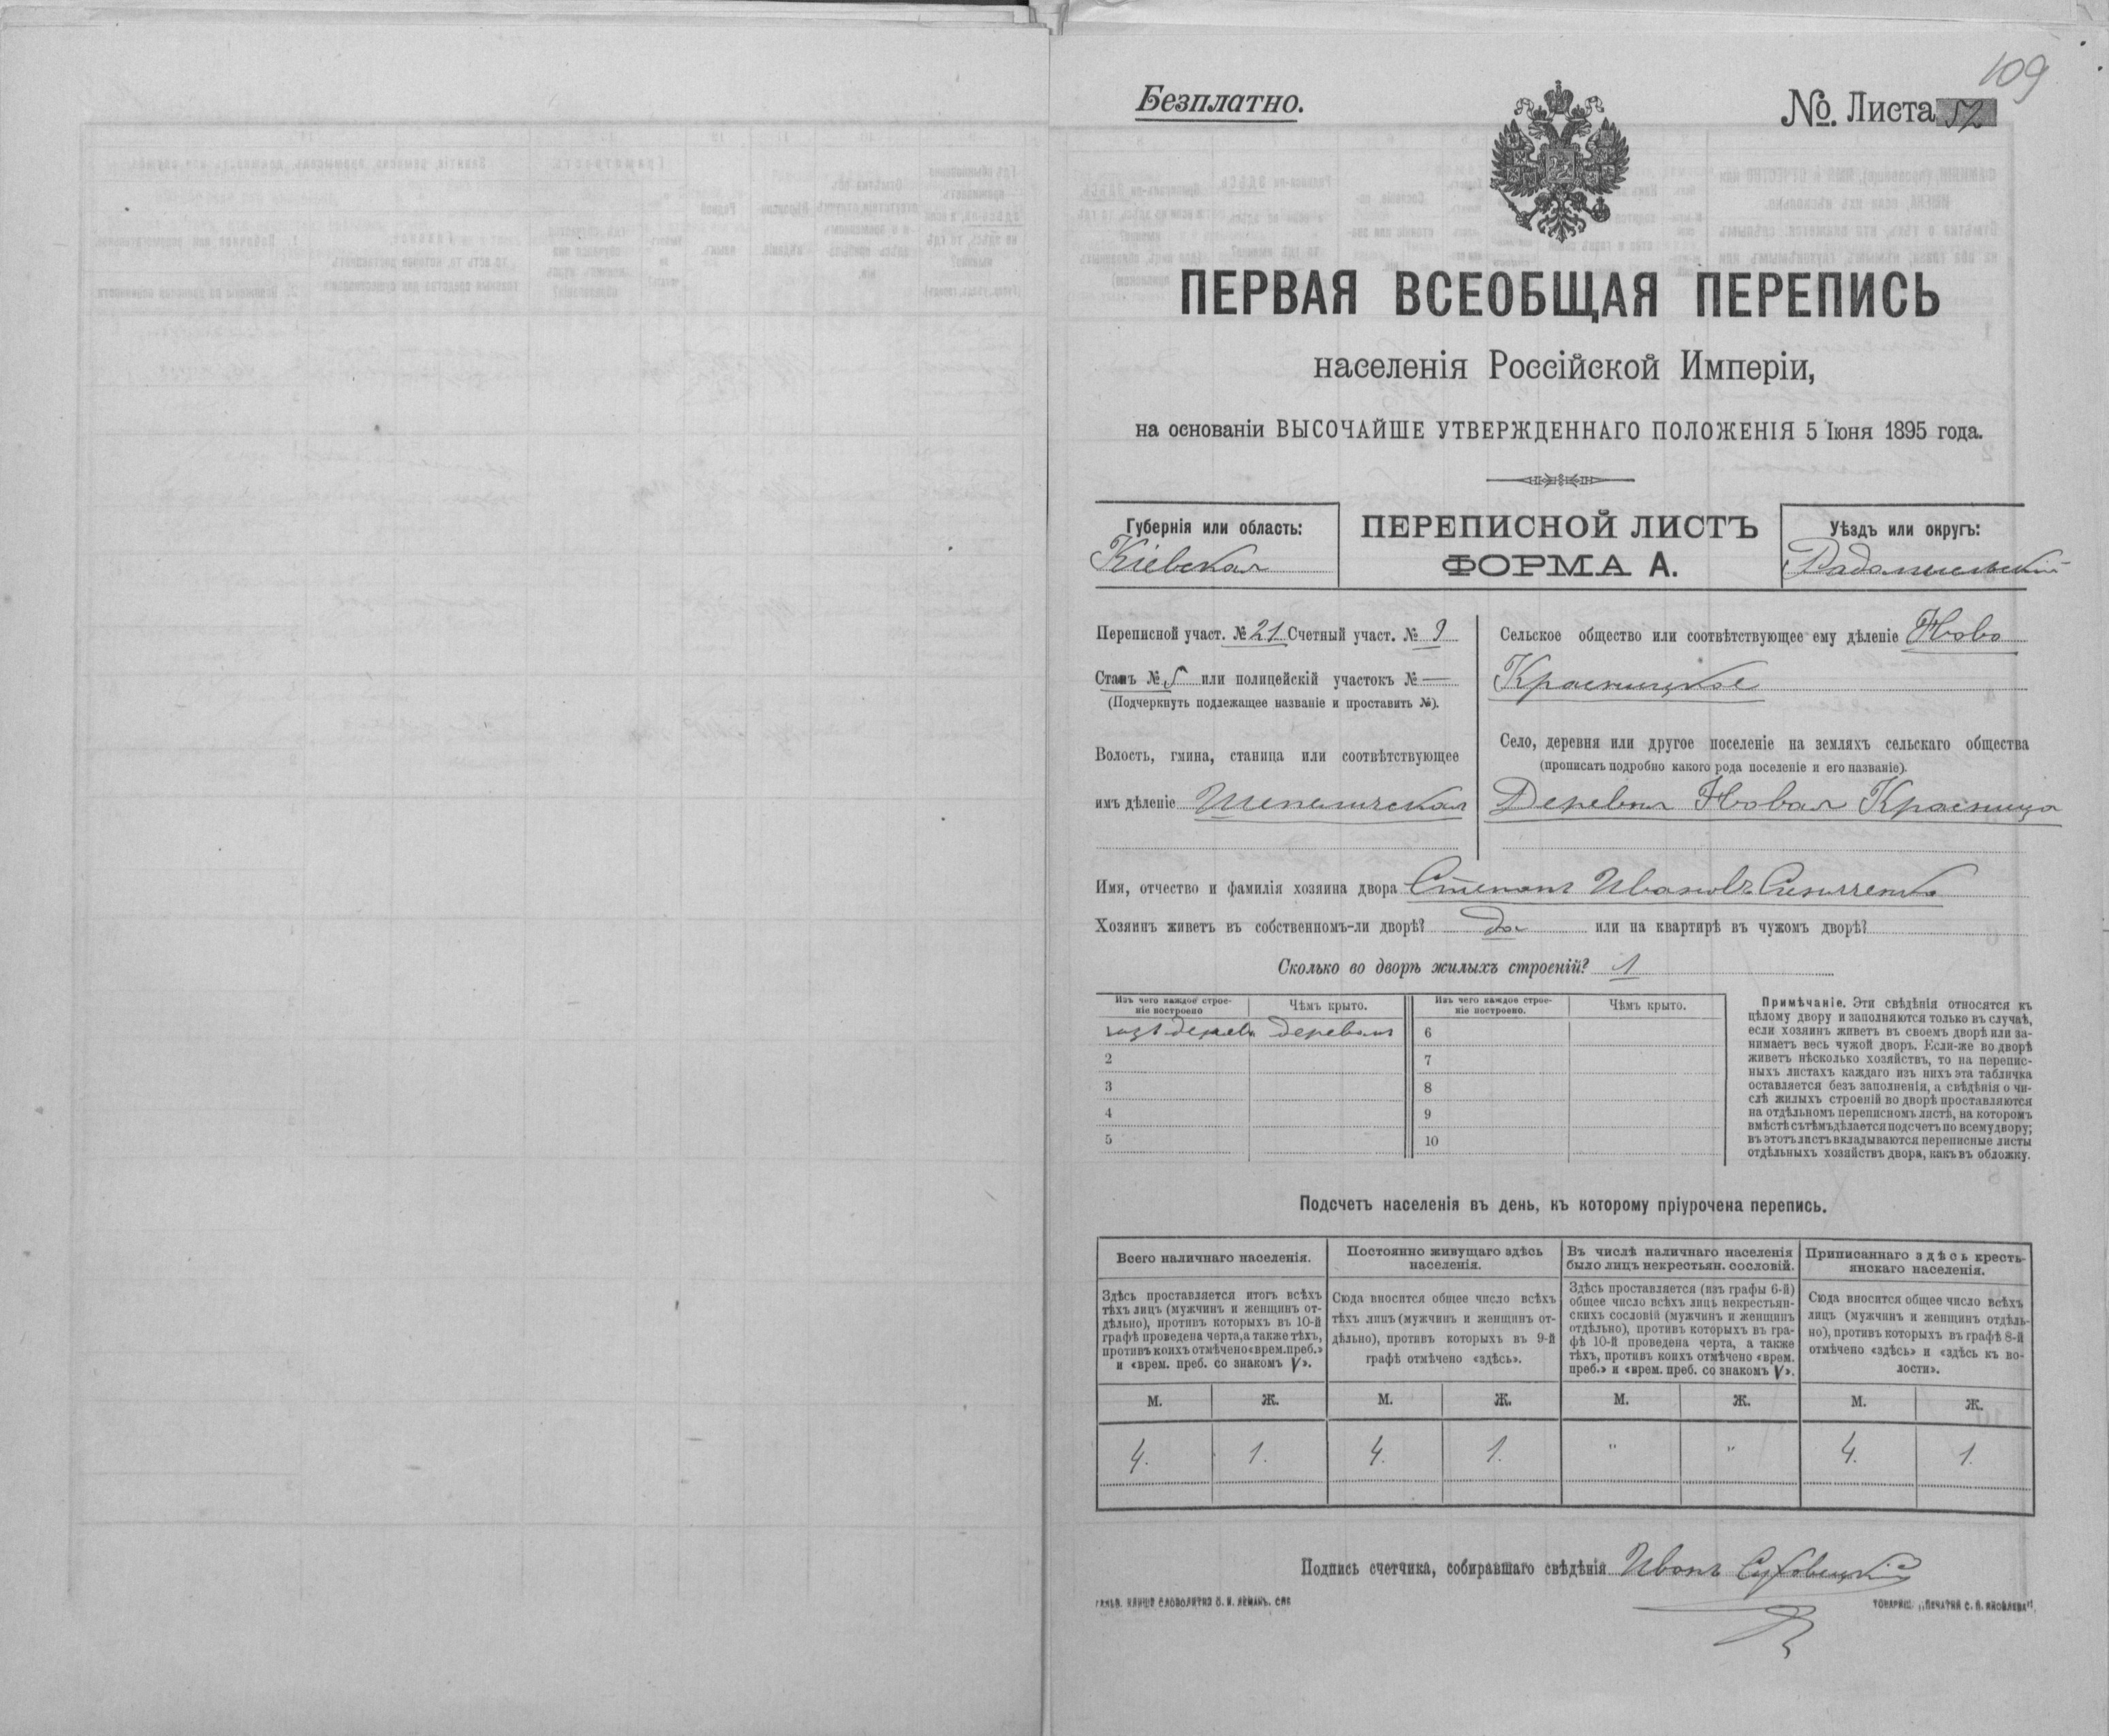 109
Безплатно.
№. Листа 52
ПЕРВАЯ ВСЕОБЩАЯ ПЕРЕПИСЬ
населенія Россійской Имперіи,
на основаніи ВЫСОЧАЙШЕ УТВЕРЖДЕННАГО ПОЛОЖЕНІЯ 5 Іюня 1895 года.
Губернія или область:
Кіевская
ПЕРЕПИСНОЙ ЛИСТЪ
ФОРМА А.
Уѣздъ или округъ:
Радомысльскій
Переписной участ. № 21 Счетный участ. № 9
Станъ № 5 или полицейскій участокъ № —
(Подчеркнуть подлежащее названіе и проставить №).
Волость, гмина, станица или соотвѣтствующее
имъ дѣленіе Шепеличская
Сельское общество или соотвѣтствующее ему дѣленіе Ново
Красницкое
Село, деревня или другое поселеніе на земляхъ сельскаго общества
(прописать подробно какого рода поселеніе и его названіе).
Деревня Новая Красница
Имя, отчество и фамилія хозяина двора Степанъ Ивановъ
Хозяинъ живетъ въ собственномъ-ли дворѣ? да или на квартирѣ въ чужомъ дворѣ?
Сколько во дворѣ жилыхъ строеній? 1
Изъ чего каждое строе-
ніе построено
Чѣмъ крыто.
Изъ чего каждое строе-
ніе построено.
Чѣмъ крыто.
изъ дерева деревом 6
2 7
3 8
4 9
5 10
Примѣчаніе. Эти свѣдѣнія относятся къ
цѣлому двору и заполняются только въ случаѣ,
если хозяинъ живетъ въ своемъ дворѣ или за-
нимаетъ весь чужой дворъ. Если-же во дворѣ
живетъ нѣсколько хозяйствъ, то на перепис-
ныхъ листахъ каждаго изъ нихъ эта табличка
оставляется безъ заполненія, а свѣдѣнія о чи-
слѣ жилыхъ строеній во дворѣ проставляются
на отдѣльномъ переписномъ листѣ, на которомъ
вмѣстѣ съ тѣмъ дѣлается подсчетъ по всему двору;
въ этотъ листъ вкладываются переписные листы
отдѣльныхъ хозяйствъ двора, какъ въ обложку.
Подсчетъ населенія въ день, къ которому пріурочена перепись.
Всего наличнаго населенія.
Здѣсь проставляется итогъ всѣхъ
тѣхъ лицъ (мужчинъ и женщинъ от-
дѣльно), противъ которыхъ въ 10-й
графѣ проведена черта, а также тѣхъ,
противъ коихъ отмѣчено «врем. преб.»
и «врем. преб. со знакомъ V».
Постоянно живущаго здѣсь
населенія.
Сюда вносится общее число всѣхъ
тѣхъ лицъ (мужчинъ и женщинъ от-
дѣльно), противъ которыхъ въ 9-й
графѣ отмѣчено «здѣсь».
Въ числѣ наличнаго населенія
было лицъ некрестьян. сословій.
Здѣсь проставляется (изъ графы 6-й)
общее число всѣхъ лицъ некрестьян-
скихъ сословій (мужчинъ и женщинъ
отдѣльно), противъ которыхъ въ гра-
фѣ 10-й проведена черта, а также
тѣхъ, противъ коихъ отмѣчено «врем.
преб.» и «врем. преб. со знакомъ V».
Приписаннаго здѣсь кресть-
янскаго населенія.
Сюда вносится общее число всѣхъ
лицъ (мужчинъ и женщинъ отдѣль-
но), противъ которыхъ въ графѣ 8-й
отмѣчено «здѣсь» и «здѣсь къ во-
лости».
М. Ж. М. Ж. М. Ж. М. Ж.
4. 1. 4. 1. " " 4. 1.
Подпись счетчика, собиравшаго свѣдѣнія Иванъ Суховецкій
ГАЛЬВ. КЛИШЕ СЛОВОЛИТНЯ О. И. ЛЕМАНЪ. СПБ
ТОВАРИЩ. „ПЕЧАТНЯ С. П. ЯКОВЛЕВА".